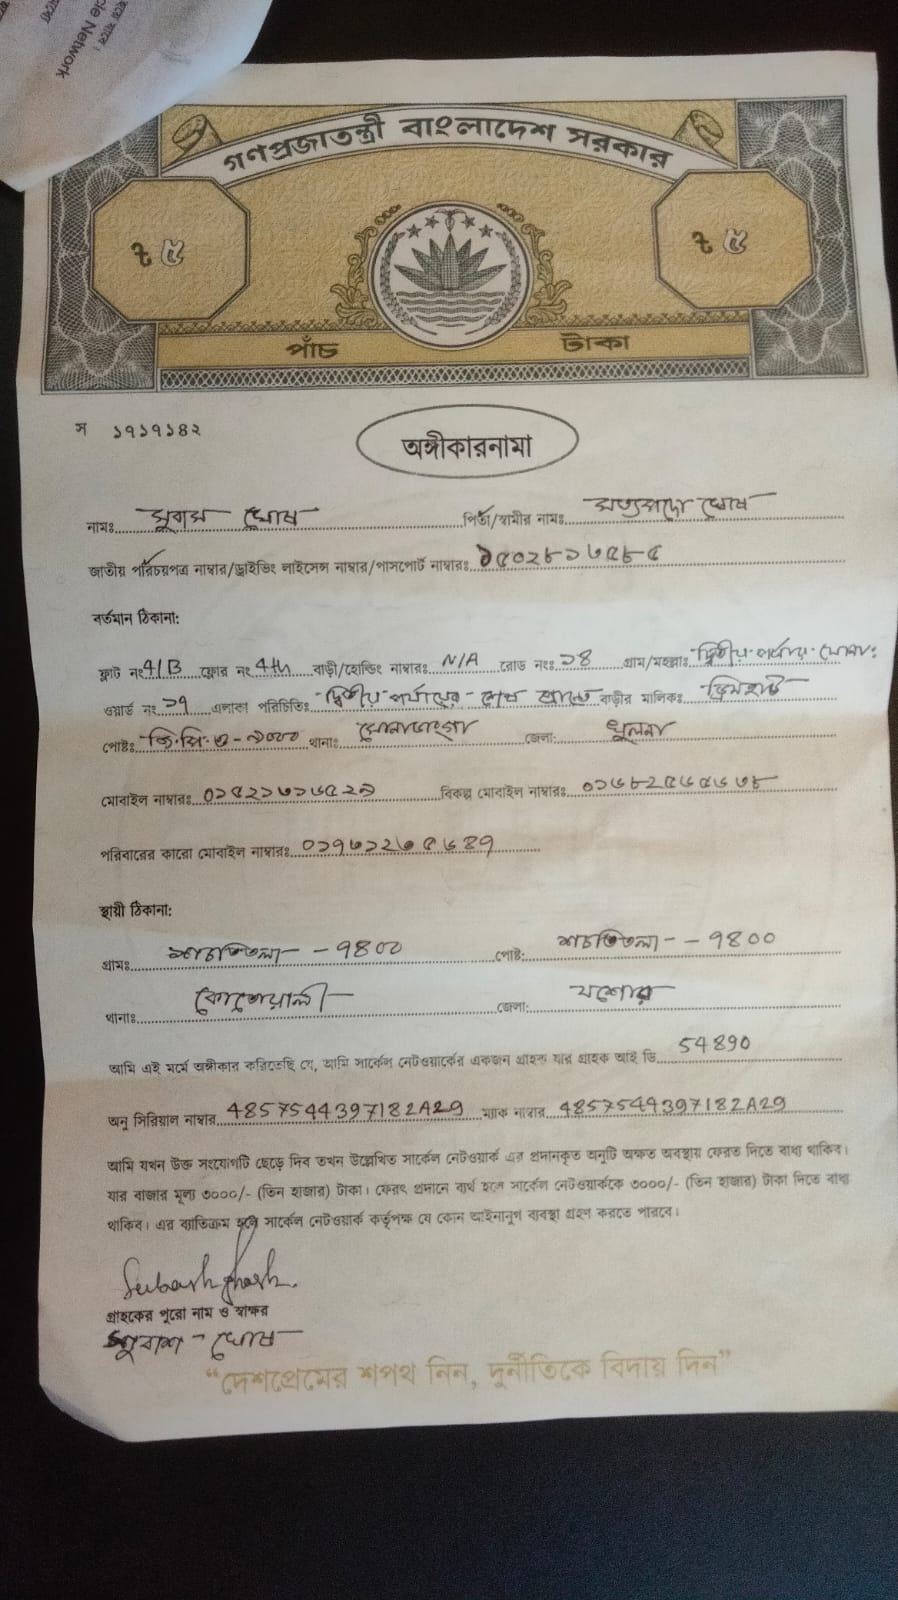 গণপ্রজাতন্ত্রী বাংলাদেশ সরকার
৳ ৫ ৳ ৫
পাঁচ টাকা
স ১৭১৭১৪২
অঙ্গীকারনামা
নামঃ সুবাস ঘোষ পিতা/স্বামীর নামঃ সত্যপদো ঘোষ
জাতীয় পরিচয়পত্র নাম্বার/ড্রাইভিং লাইসেন্স নাম্বার/পাসপোর্ট নাম্বারঃ
বর্তমান ঠিকানা:
ফ্লাট নংঃ 4/B ফ্লোর নংঃ 4th বাড়ী/হোল্ডিং নাম্বারঃ N/A রোড নংঃ ১৪ গ্রাম/মহল্লাঃ দ্বিতীয় পর্যায়
ওয়ার্ড নংঃ ১৭ এলাকা পরিচিতিঃ দ্বিতীয় পর্যায়ের শেষ প্রান্তে বাড়ীর মালিকঃ
পোষ্টঃ জি.পি.ও-৯০০০ থানাঃ সোনাডাঙ্গা জেলা: খুলনা
মোবাইল নাম্বারঃ বিকল্প মোবাইল নাম্বারঃ
পরিবারের কারো মোবাইল নাম্বারঃ
স্থায়ী ঠিকানা:
গ্রামঃ - ৭৪০০ পোষ্ট: - ৭৪০০
থানাঃ কোতোয়ালী জেলা: যশোর
আমি এই মর্মে অঙ্গীকার করিতেছি যে, আমি সার্কেল নেটওয়ার্কের একজন গ্রাহক যার গ্রাহক আই ডি 54890
অনু সিরিয়াল নাম্বার 4857544397182A29 ম্যাক নাম্বার 4857544397182A29
আমি যখন উক্ত সংযোগটি ছেড়ে দিব তখন উল্লেখিত সার্কেল নেটওয়ার্ক এর প্রদানকৃত অনুটি অক্ষত অবস্থায় ফেরত দিতে বাধ্য থাকিব।
যার বাজার মূল্য ৩০০০/- (তিন হাজার) টাকা। ফেরৎ প্রদানে ব্যর্থ হলে সার্কেল নেটওয়ার্ককে ৩০০০/- (তিন হাজার) টাকা দিতে বাধ্য
থাকিব। এর ব্যতিক্রম হলে সার্কেল নেটওয়ার্ক কর্তৃপক্ষ যে কোন আইনানুগ ব্যবস্থা গ্রহণ করতে পারবে।
Subash ghosh.
গ্রাহকের পুরো নাম ও স্বাক্ষর
সুবাশ ঘোষ
“দেশপ্রেমের শপথ নিন, দুর্নীতিকে বিদায় দিন”